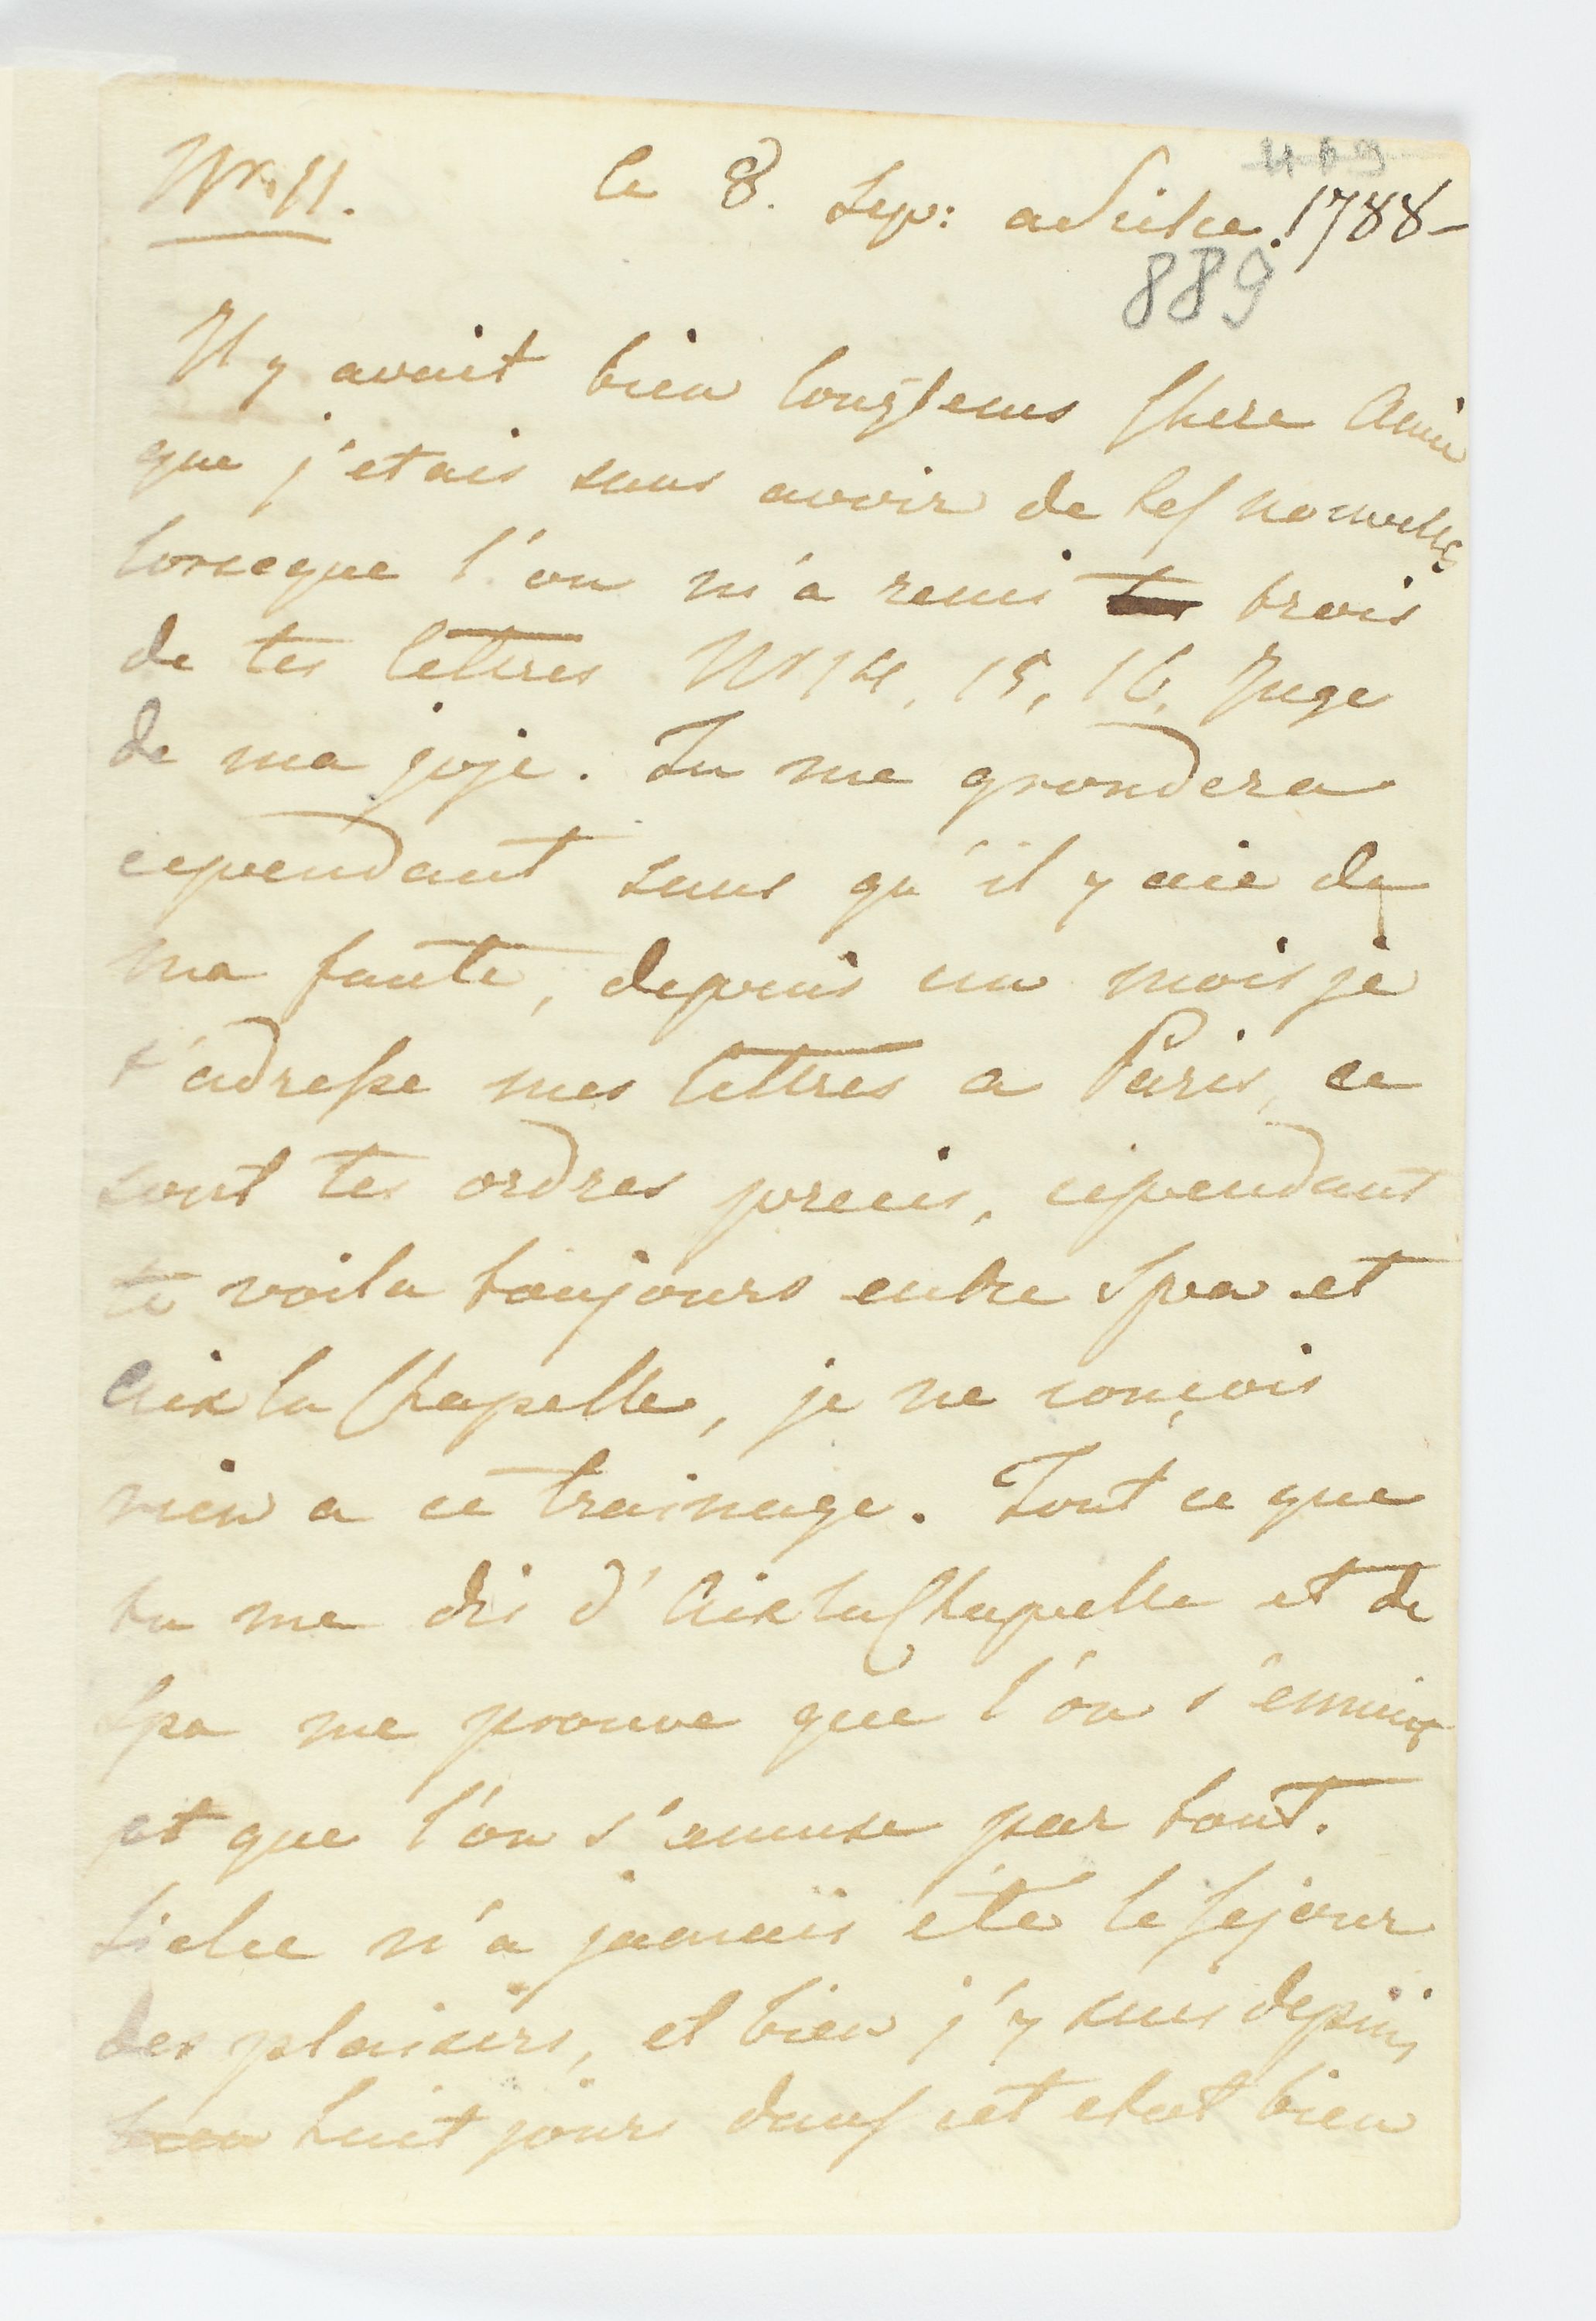 Nr. 11. le 8. Sep: a Sielce. 1788-
889
Il y avait bien longtems Chere Amie
que j'etais sans avoir de tes nouvelles
lorsque l'on m'a remis trois
de tes lettres Nr 14, 15, 16, Juge
de ma joje. Tu me grondera
cependant sans qu'il y aie de
ma faute, depuis un mois je
t'adresse mes lettres a Paris, ce
sont tes ordres precis, cependant
te voila toujours entre Spa et
Aix la Chapelle, je ne conçois
rien a ce trainage. Tout ce que
tu me dis d'Aix la Chapelle et de
Spa me prouve que l'on s'ennuie
et que l'on s'amuse par tout.
Sielce n'a jamais été le sejour
des plaisirs, et bien j'y suis depuis
huit jours dans cet etat bien